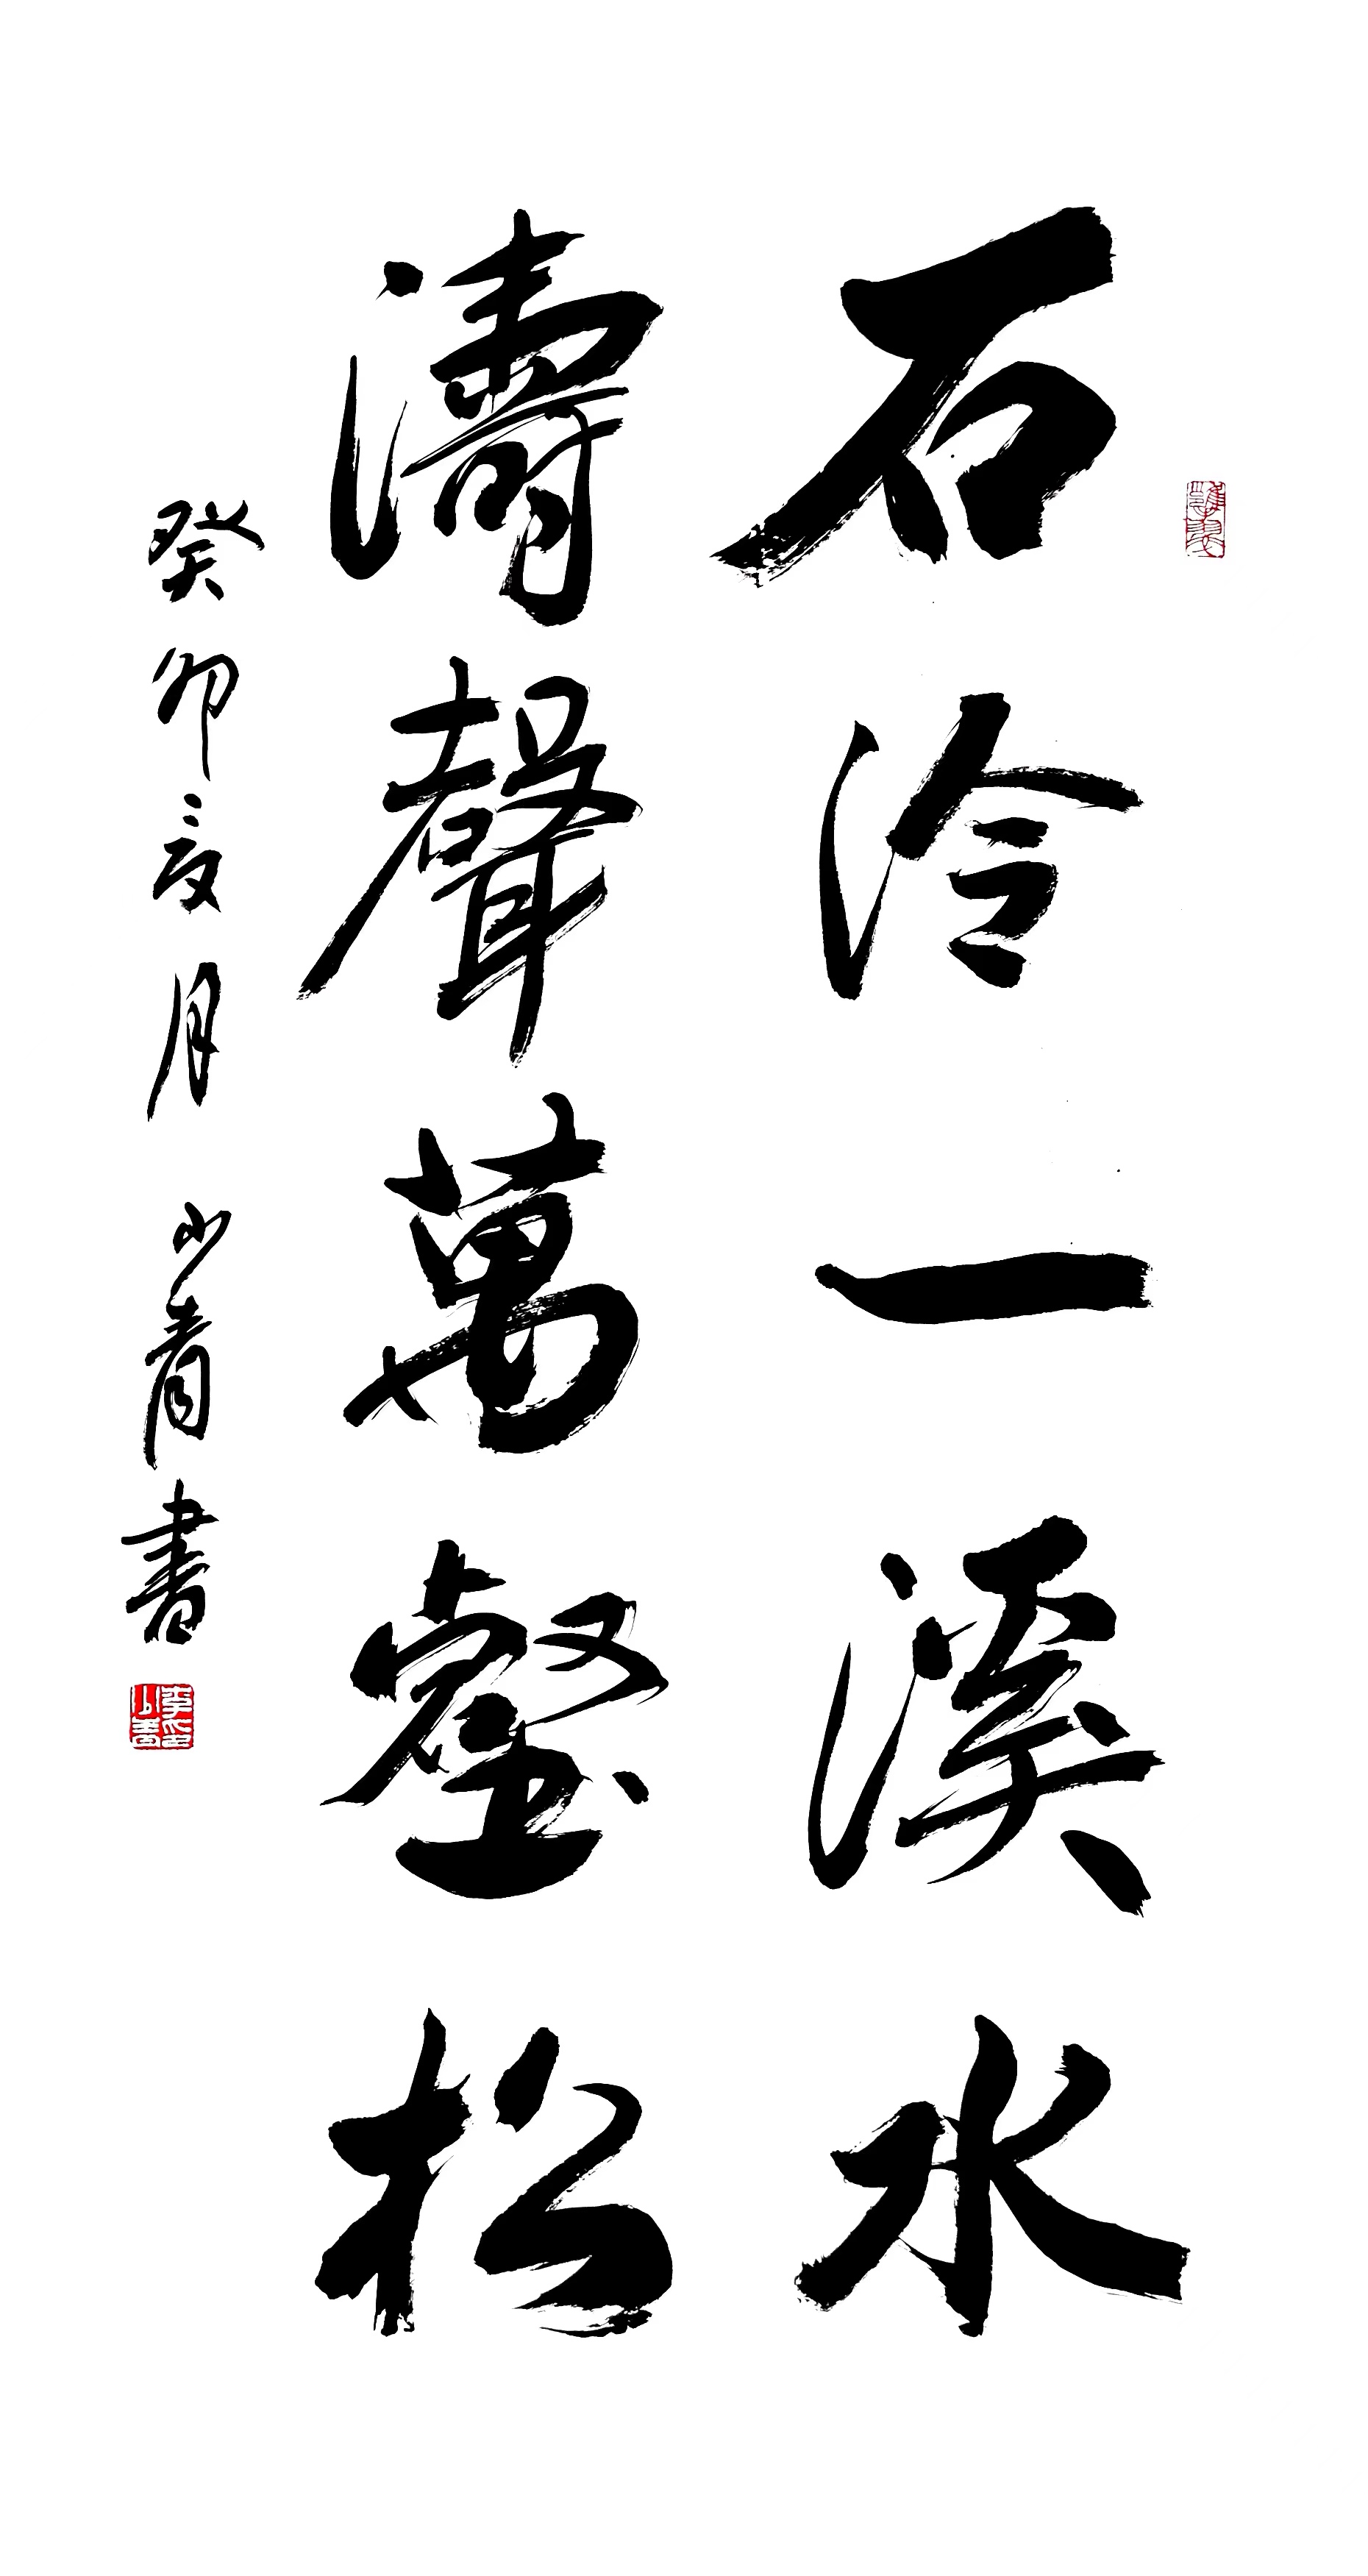 石泠一溪水
濤聲萬壑松
癸卯夏月 少青書